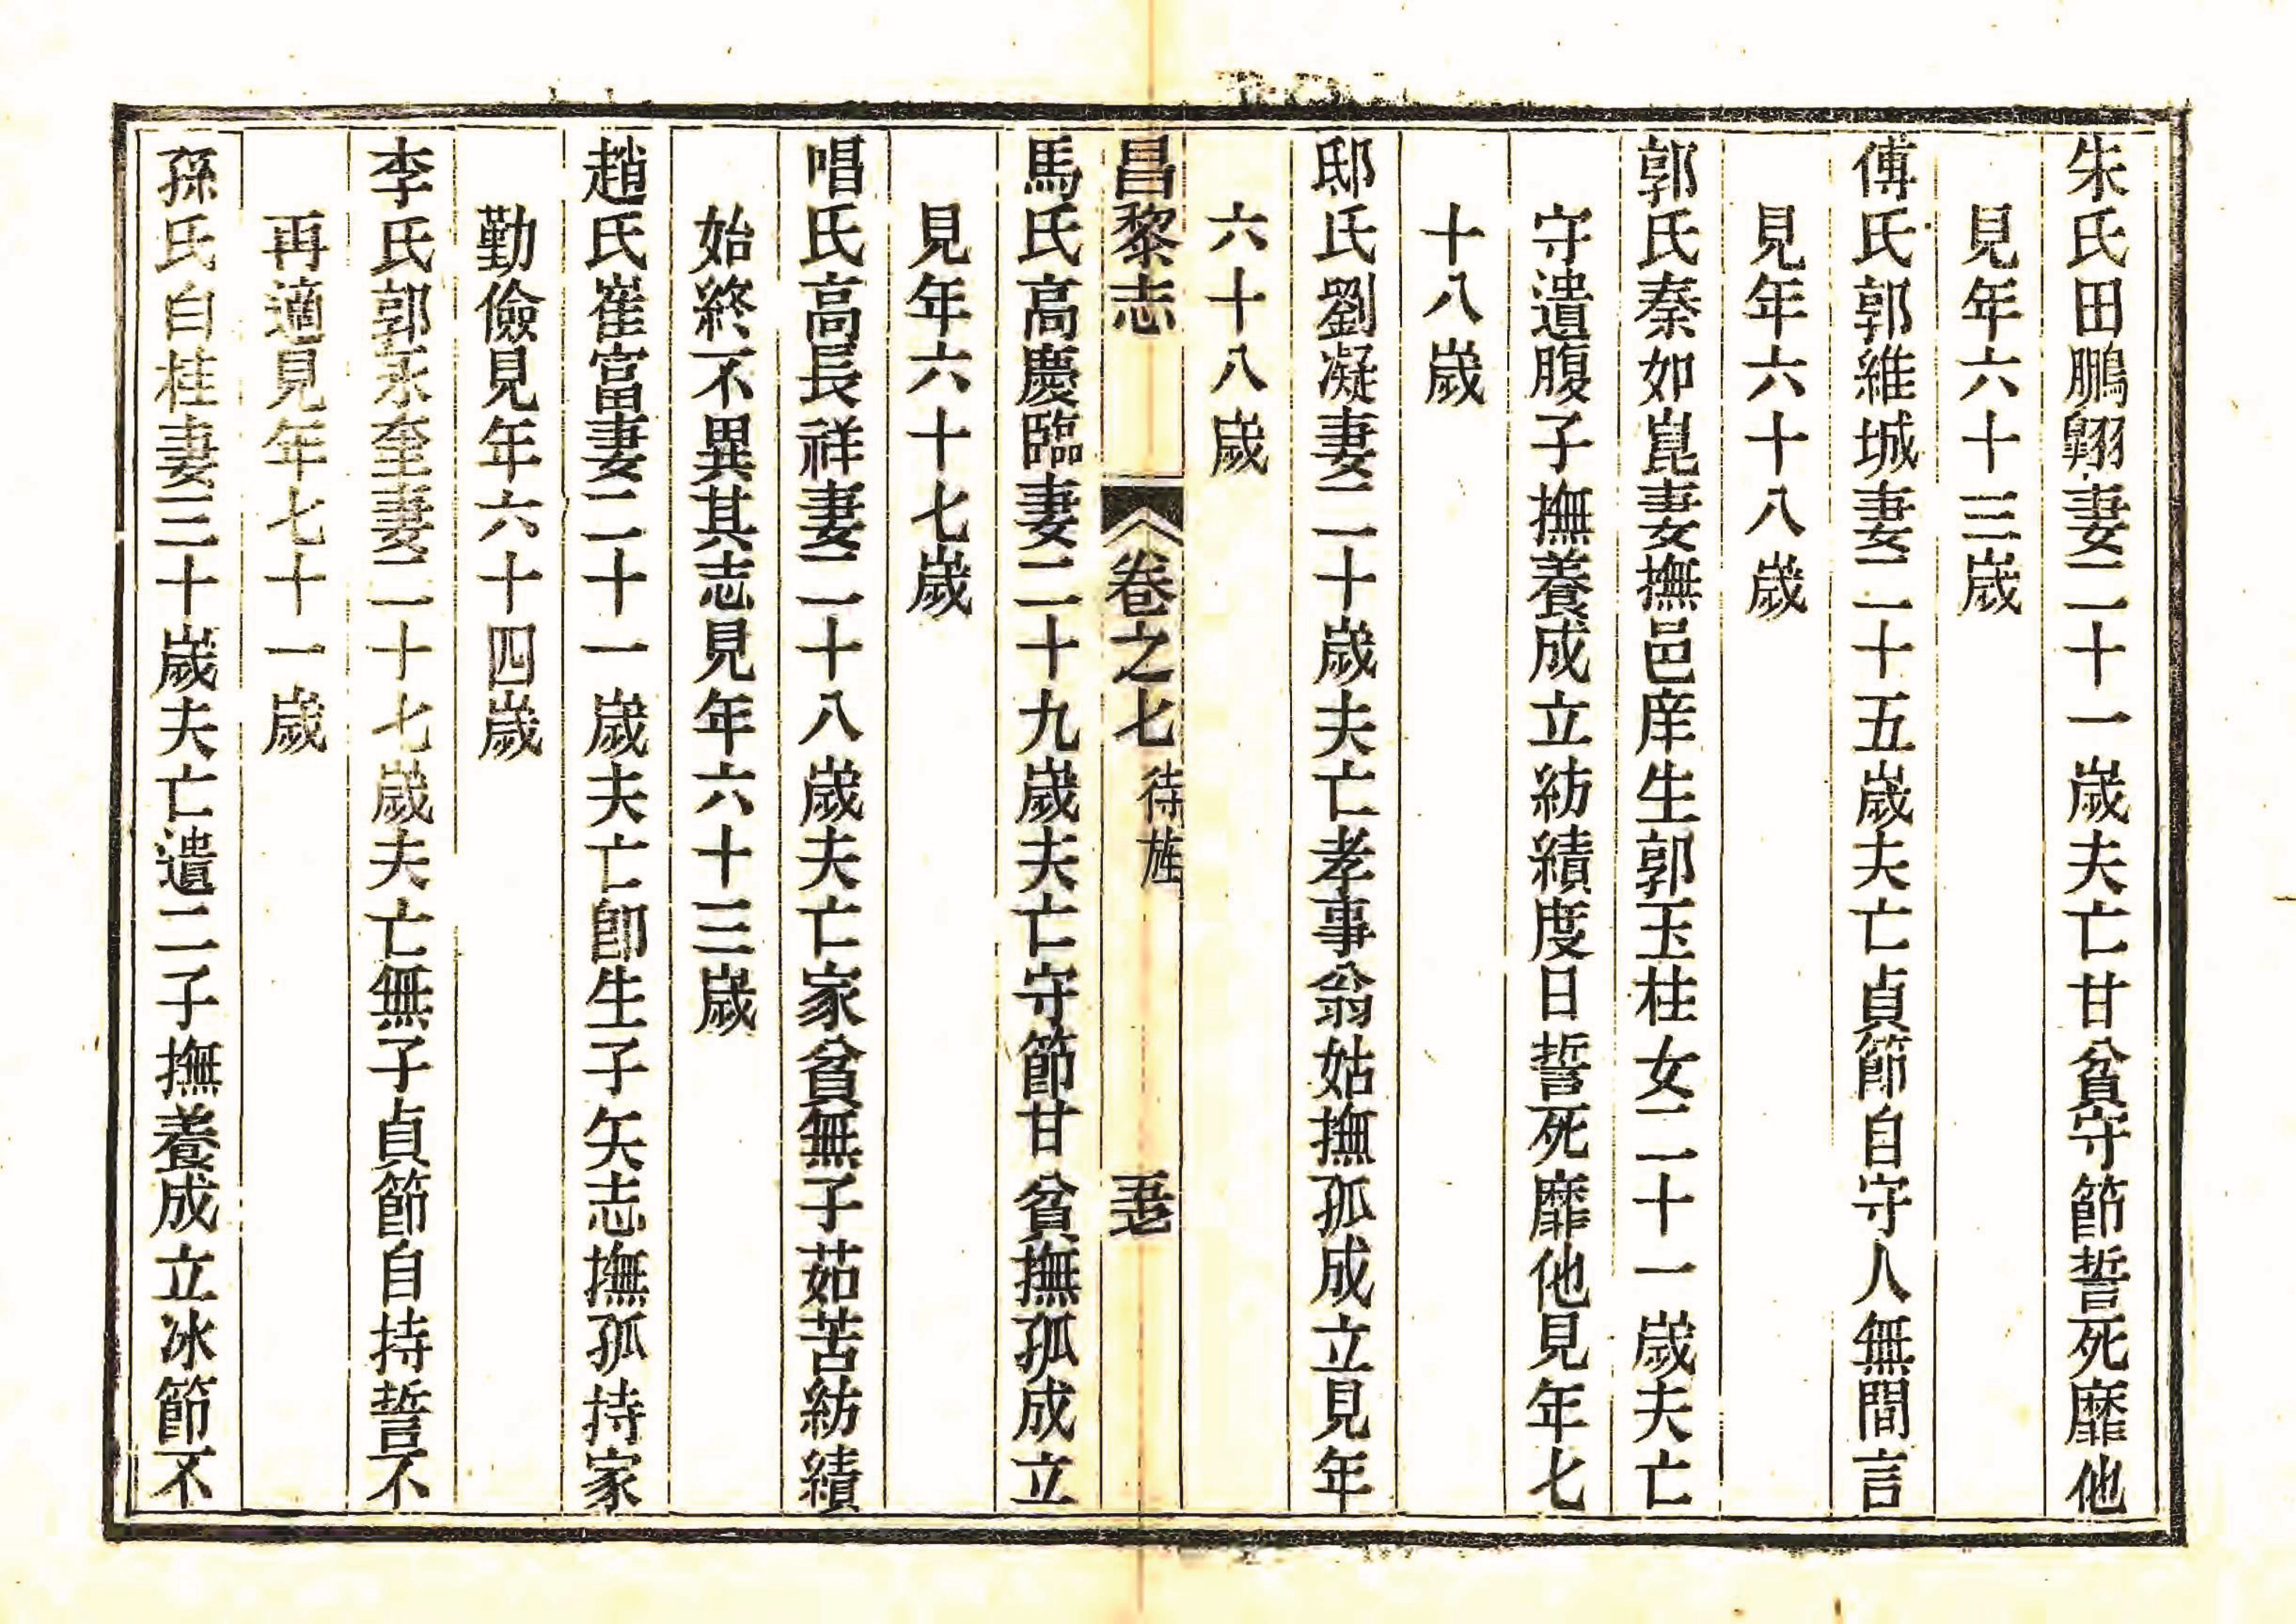 朱氏田鵬翱妻二十一歲夫亡甘貧守節誓死靡他
見年六十三歲
傅氏郭維城妻二十五歲夫亡貞節自守人無間言
見年六十八歲
郭氏秦如崑妻撫邑庠生郭玉柱女二十一歲夫亡
守遺腹子撫養成立紡績度日誓死靡他見年七
十八歲
邸氏劉凝妻二十歲夫亡孝事翁姑撫孤成立見年
六十八歲
昌黎志 卷之七 待旌
馬氏高慶臨妻二十九歲夫亡守節甘貧撫孤成立
見年六十七歲
唱氏高長祥妻二十八歲夫亡家貧無子茹苦紡績
始終不異其志見年六十三歲
趙氏崔富妻二十一歲夫亡卽生子矢志撫孤持家
勤儉見年六十四歲
李氏郭永奎妻二十七歲夫亡無子貞節自持誓不
再適見年七十一歲
孫氏白桂妻三十歲夫亡遺二子撫養成立冰節不